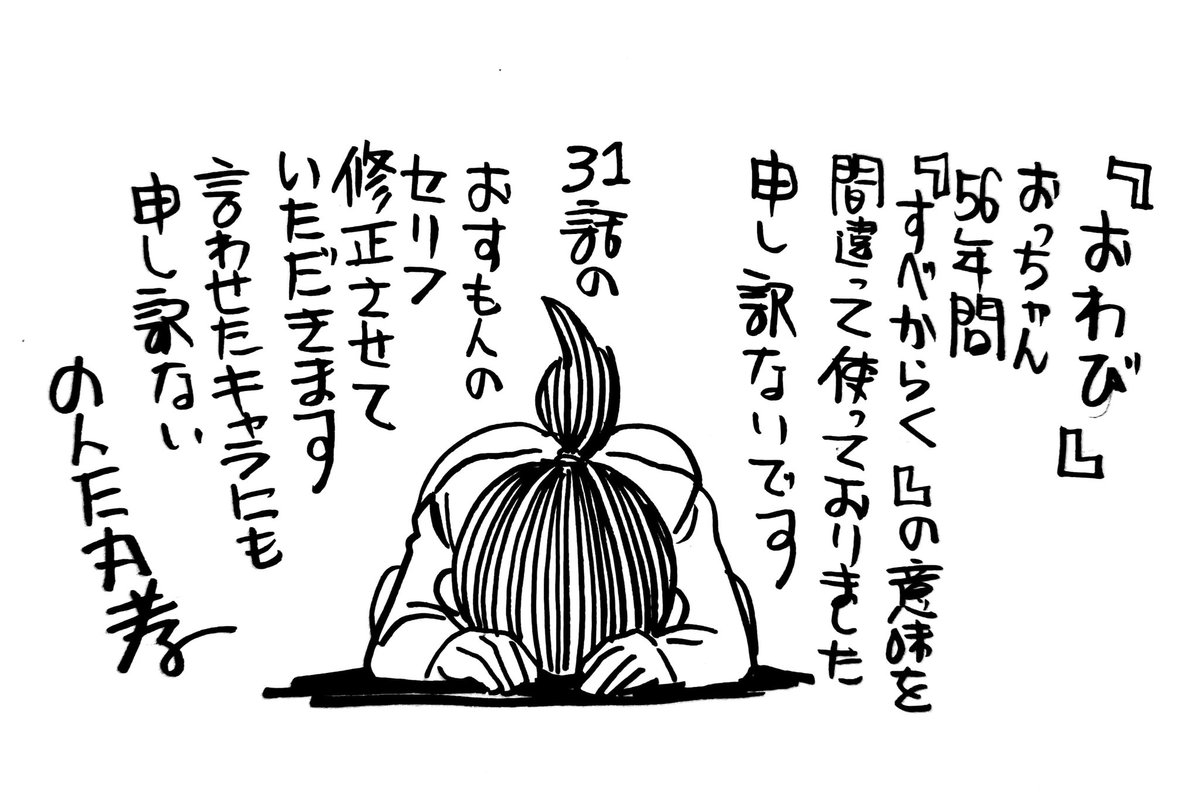 『おわび』
おっちゃん
56年間
『すべからく』の意味を
間違って使っておりました
申し訳ないです
31話の
おすもんの
セリフ
修正させて
いただきます
言わせたキャラにも
申し訳ない
のんだ孝